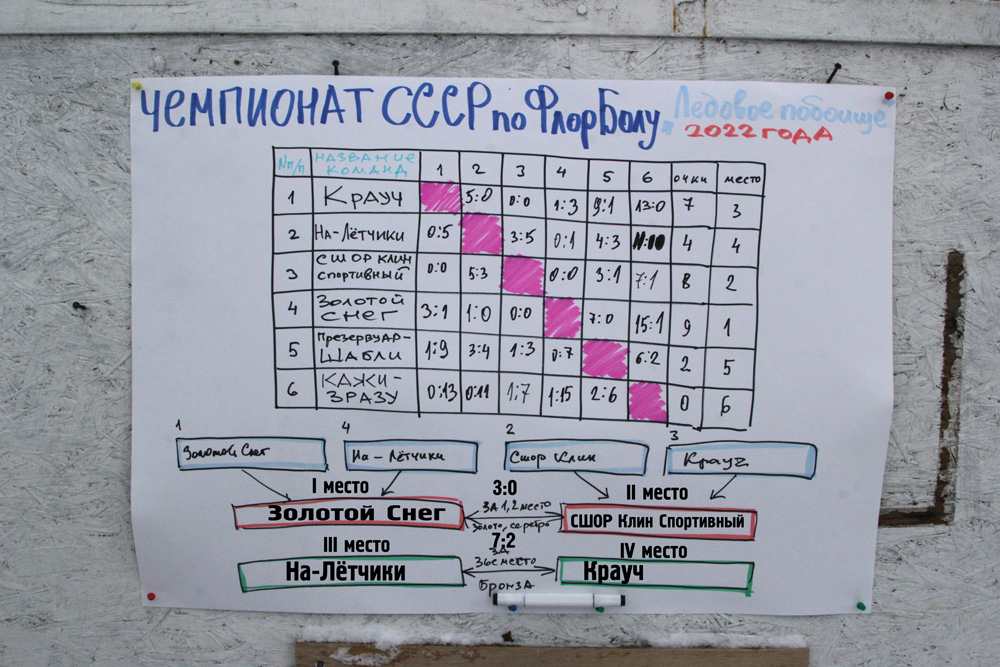 ЧЕМПИОНАТ СССР по ФлорБолу. Ледовое побоище
2022 ГОДА
№п/п НАЗВАНИЕ КОМАНД 1 2 3 4 5 6 очки место
1 Крауч 5:0 0:0 1:3 9:1 13:0 7 3
2 На-Лётчики 0:5 3:5 0:1 4:3 4 4
3 СШОР КЛИН спортивный 0:0 5:3 0:0 3:1 7:1 8 2
4 Золотой СНЕГ 3:1 1:0 0:0 7:0 15:1 9 1
5 Презервуар-Шабли 1:9 3:4 1:3 0:7 6:2 2 5
6 КАЖИ-ЗРАЗУ 0:13 0:11 1:7 1:15 2:6 0 6
1 4 2 3
Золотой Снег На-Лётчики Сшор Клин Крауч
I место 3:0 II место
ЗА 1,2 место
Золотой Снег СШОР Клин Спортивный
Золото, серебро
III место 7:2 IV место
ЗА
3ье место
На-Лётчики Крауч
Бронза